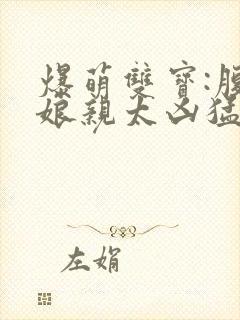 爆萌雙寶:
娘親太凶猛
左娟